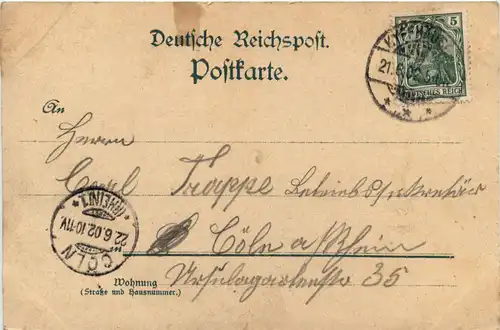 Deutsche Reichspost.
Postkarte.
5
DEUTSCHES REICH
21.6.02
An
Herrn
Carl Trappe Betriebssekretär
Cöln a/Rhein
Ursulagartenstr 35
CÖLN
22.6.02.10-11V.
*(RHEIN)1*
Wohnung
(Straße und Hausnummer.)